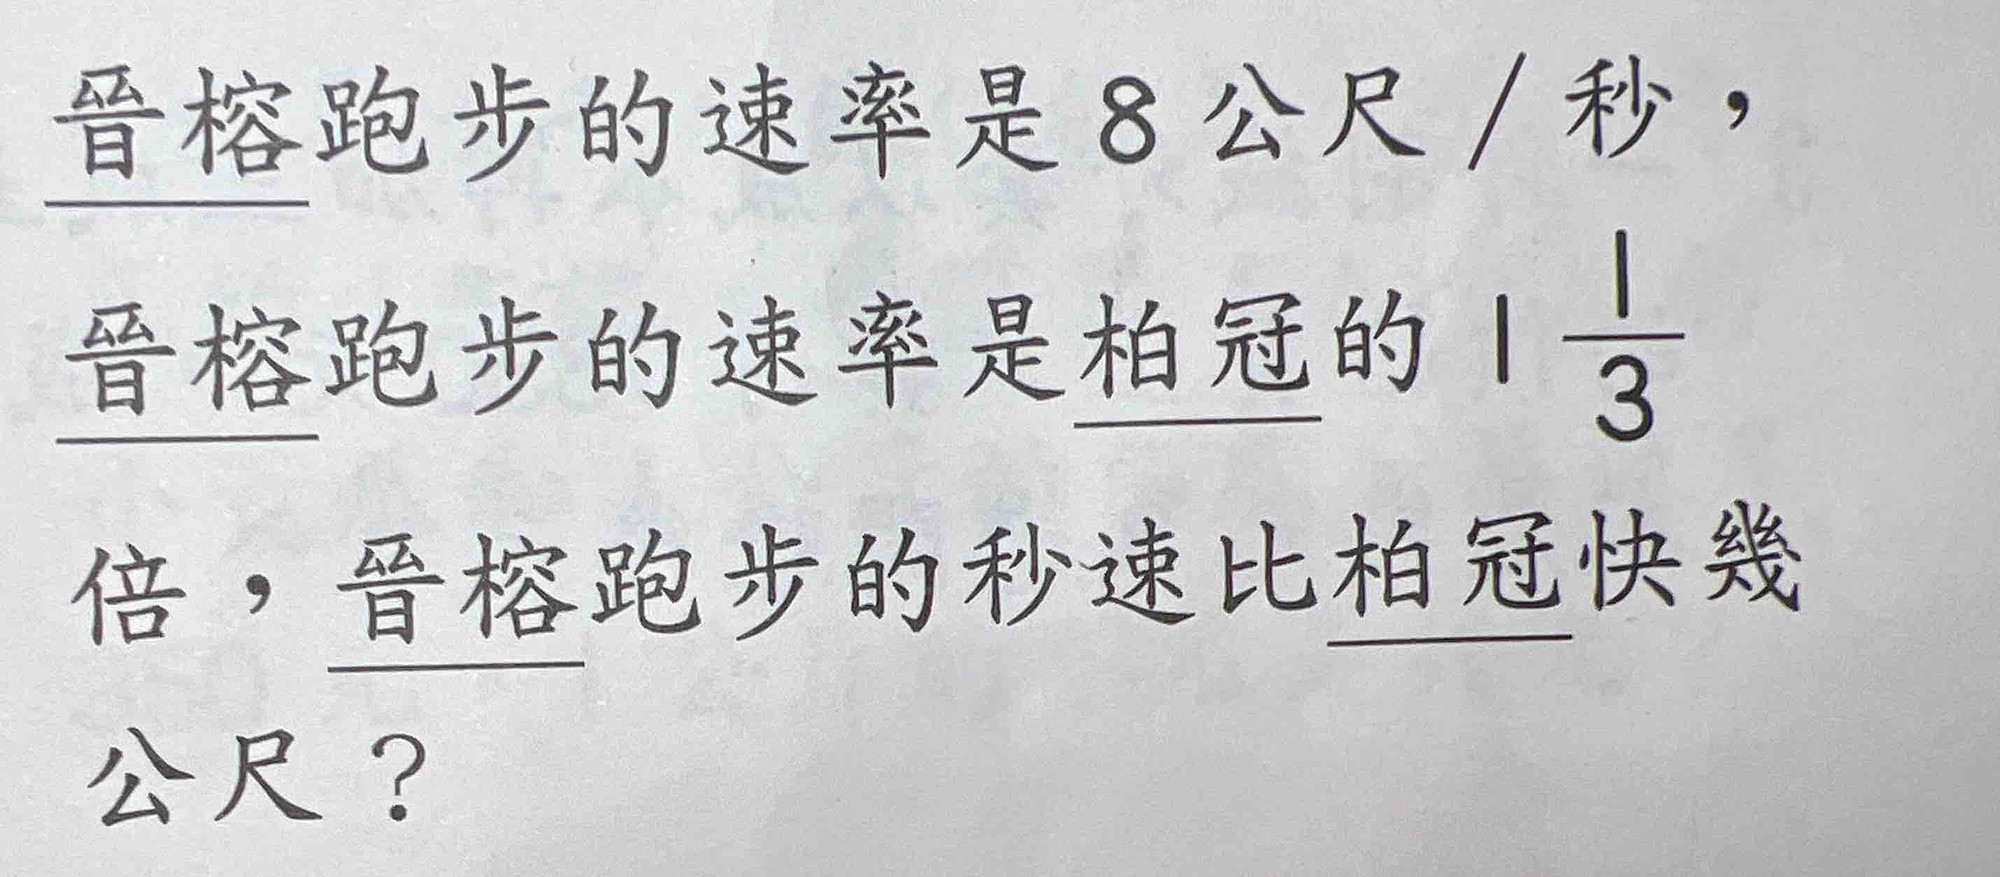 晉榕跑步的速率是8公尺/秒，
晉榕跑步的速率是柏冠的1 1/3
倍，晉榕跑步的秒速比柏冠快幾
公尺？